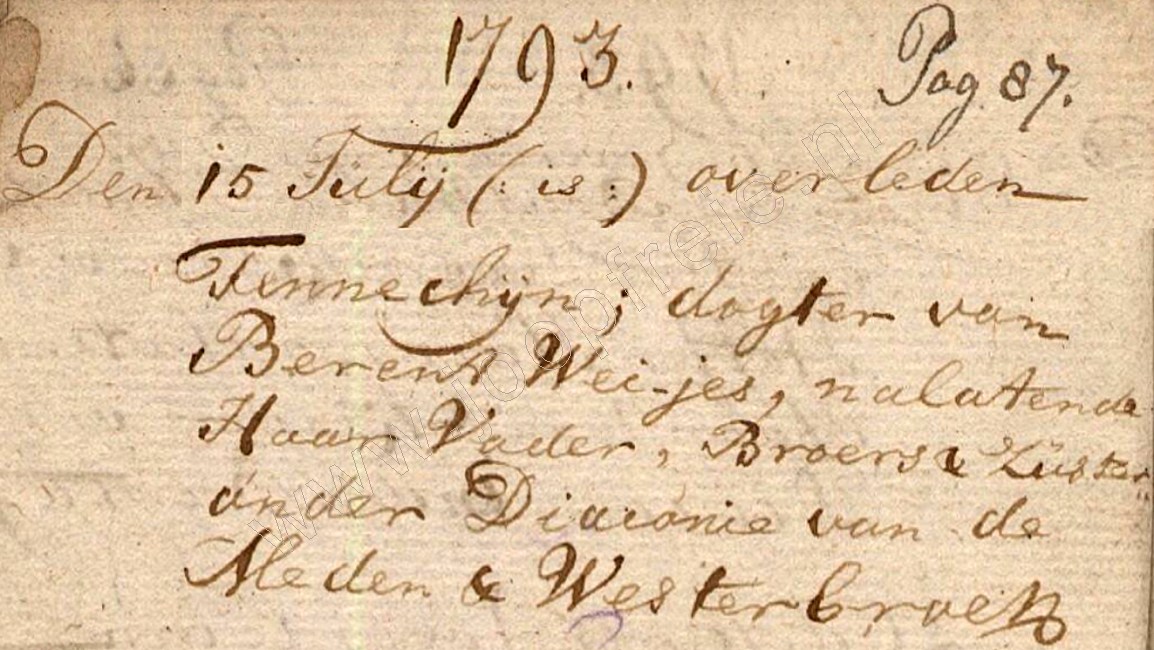 1793. Pag 87.
Den 15 Julij (: is :) overleden
Fennechijn; dogter van
Berent Wei-jes, nalatende
Haar Vader, Broers & Züster
onder Diaconie van de
Meden & Westerbroek
www.joopfreie.nl